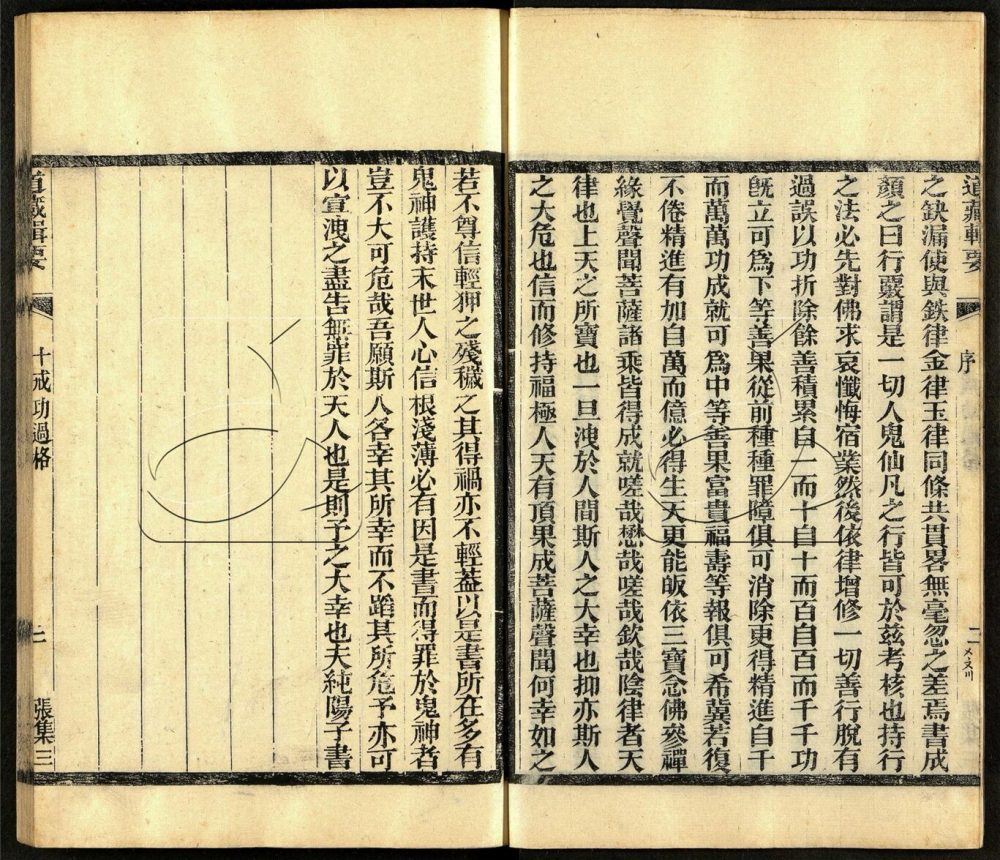 道藏輯要
序
二
之缺漏使與鉄律金律玉律同條共貫畧無毫忽之差焉書成
顏之曰行覈謂是一切人鬼仙凡之行皆可於兹考核也持行
之法必先對佛求哀懺悔宿業然後依律增修一切善行脫有
過誤以功折除餘善積累自一而十自十而百自百而千千功
旣立可爲下等善果從前種種罪障俱可消除更得精進自千
而萬萬功成就可爲中等善果富貴福壽等報俱可希冀若復
不倦精進有加自萬而億必得生天更能皈依三寶念佛參禪
緣覺聲聞菩薩諸乘皆得成就嗟哉懋哉嗟哉欽哉陰律者天
律也上天之所寶也一旦洩於人間斯人之大幸也抑亦斯人
之大危也信而修持福極人天有頂果成菩薩聲聞何幸如之
若不尊信輕狎之殘穢之其得禍亦不輕葢以是書所在多有
鬼神護持末世人心信根淺薄必有因是書而得罪於鬼神者
豈不大可危哉吾願斯人各幸其所幸而不蹈其所危予亦可
以宣洩之盡告無罪於天人也是則予之大幸也夫純陽子書
道藏輯要
十戒功過格
二
張集三